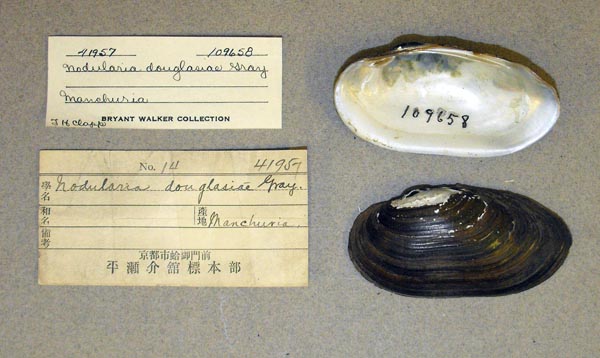 41957 109658
Nodularia douglasiae Gray
Manchuria
BRYANT WALKER COLLECTION
J H Clapp
No. 14 41957
學名 Nodularia douglasiae Gray.
和名
產地 Manchuria.
備考
京都市蛤御門前
平瀬介館標本部
109658